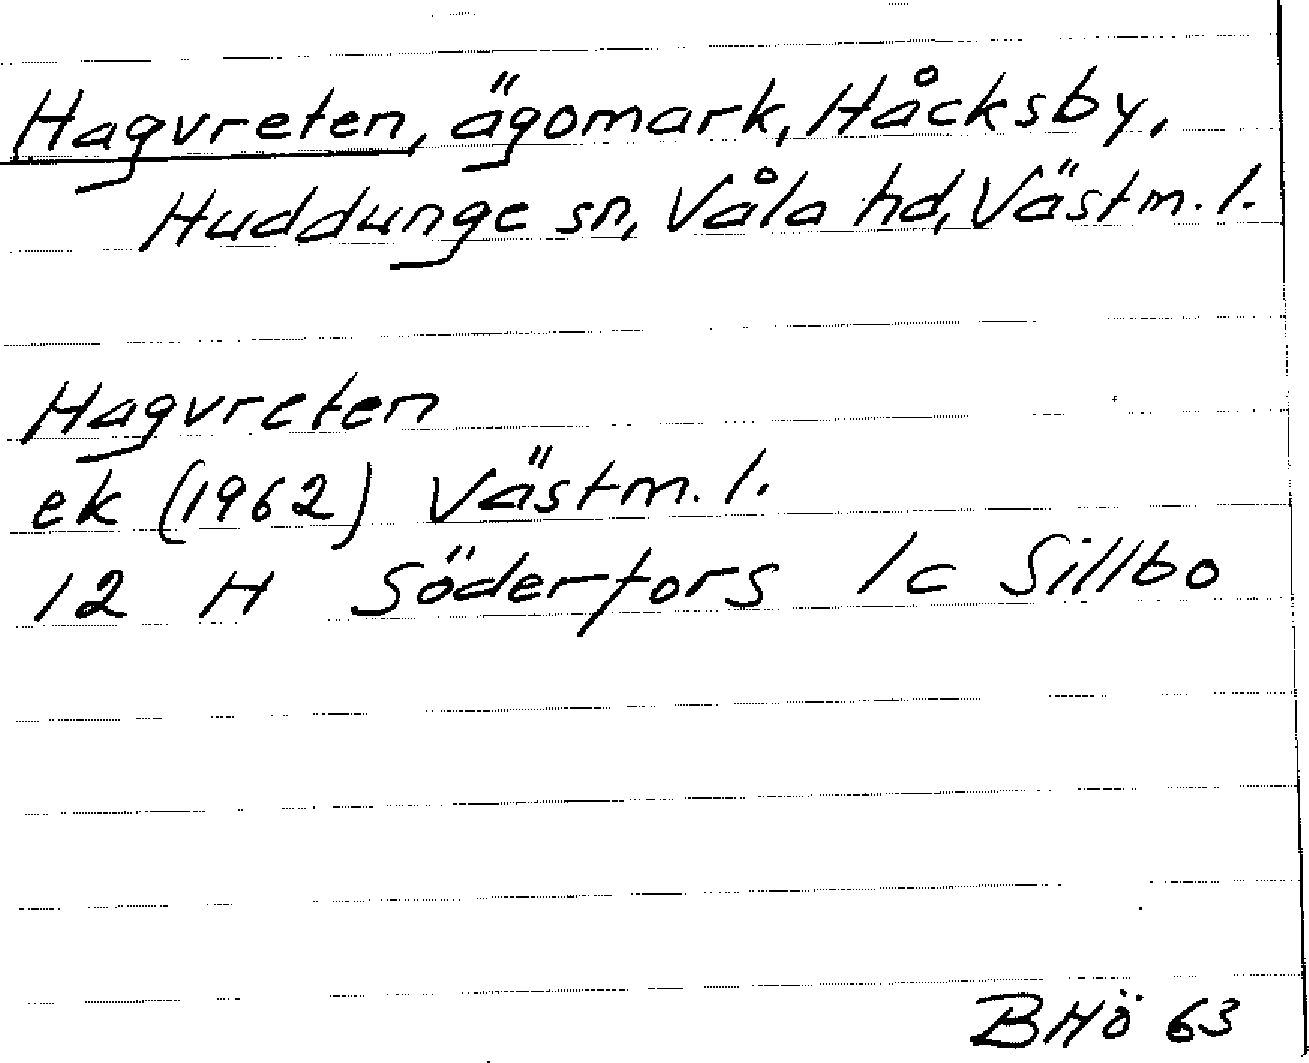 Hagvreten, ägomark, Håcksby,
Huddunge sn, Våla hd, Västm. l.
Hagvreten
ek (1962) Västm. l.
12 H Söderfors 1c Sillbo
BHö 63